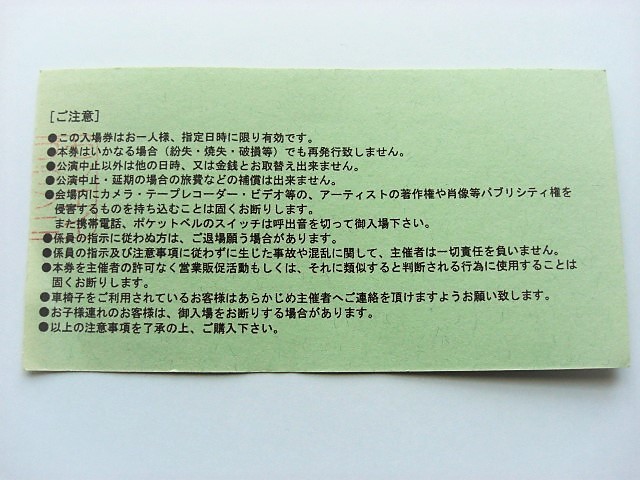 [ご注意]
●この入場券はお一人様、指定日時に限り有効です。
●本券はいかなる場合（紛失・焼失・破損等）でも再発行致しません。
●公演中止以外は他の日時、又は金銭とお取替え出来ません。
●公演中止・延期の場合の旅費などの補償は出来ません。
●会場内にカメラ・テープレコーダー・ビデオ等の、アーティストの著作権や肖像等パブリシティ権を
侵害するものを持ち込むことは固くお断りします。
また携帯電話、ポケットベルのスイッチは呼出音を切って御入場下さい。
●係員の指示に従わぬ方は、ご退場願う場合があります。
●係員の指示及び注意事項に従わずに生じた事故や混乱に関して、主催者は一切責任を負いません。
●本券を主催者の許可なく営業販促活動もしくは、それに類似すると判断される行為に使用することは
固くお断りします。
●車椅子をご利用されているお客様はあらかじめ主催者へご連絡を頂けますようお願い致します。
●お子様連れのお客様は、御入場をお断りする場合があります。
●以上の注意事項を了承の上、ご購入下さい。